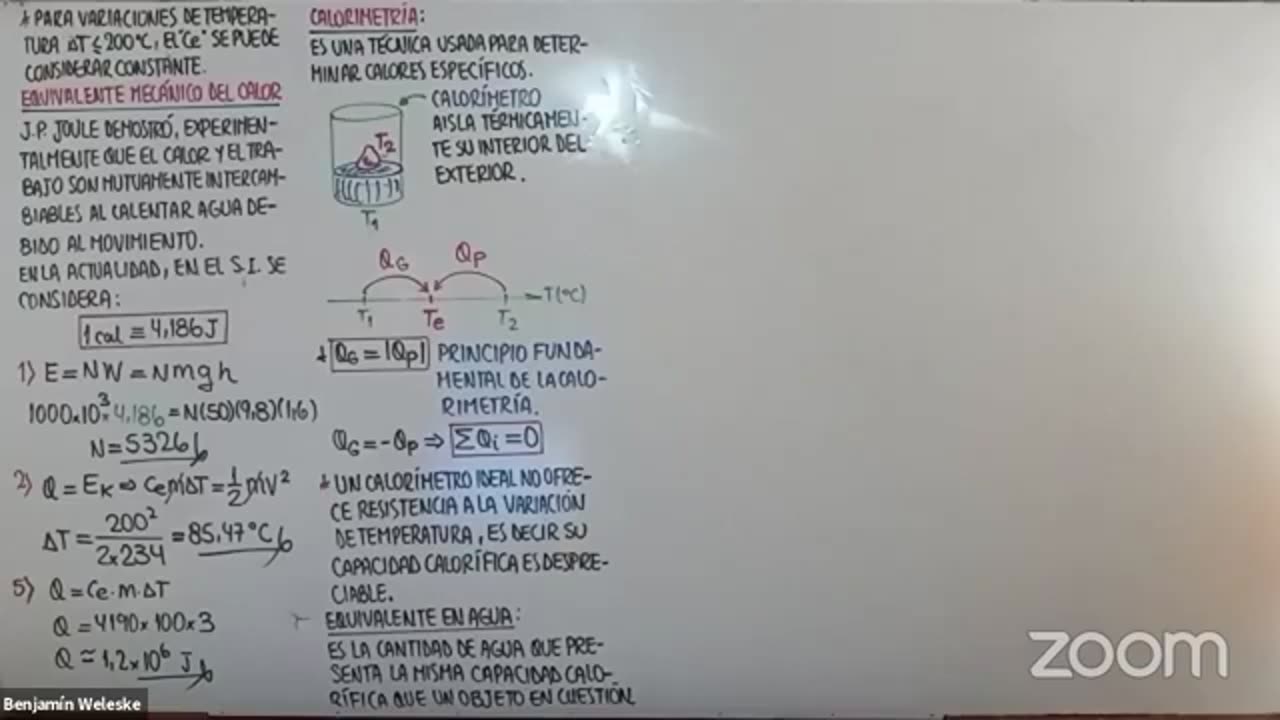 * PARA VARIACIONES DE TEMPERA-
TURA ΔT ≤ 200°C, EL "Ce" SE PUEDE
CONSIDERAR CONSTANTE.
EQUIVALENTE MECÁNICO DEL CALOR
J.P. JOULE DEMOSTRÓ, EXPERIMEN-
TALMENTE QUE EL CALOR Y EL TRA-
BAJO SON MUTUAMENTE INTERCAM-
BIABLES AL CALENTAR AGUA DE-
BIDO AL MOVIMIENTO.
EN LA ACTUALIDAD, EN EL S.I. SE
CONSIDERA:
1 cal ≡ 4,186 J
1) E = NW = Nmgh
1000x10³x4,186 = N(50)(9,8)(1,6)
N = 5326
2) Q = EK ⇒ CemΔT = 1/2 mV²
ΔT = 200²/2x234 = 85,47°C
5) Q = Ce.m.ΔT
Q = 4190x100x3
Q ≃ 1,2x10⁶ J
CALORIMETRÍA:
ES UNA TÉCNICA USADA PARA DETER-
MINAR CALORES ESPECÍFICOS.
CALORÍMETRO
AISLA TÉRMICAMEN-
TE SU INTERIOR DEL
EXTERIOR.
T2
T1
QG QP
T1 Te T2 T(°C)
* QG = |QP| PRINCIPIO FUNDA-
MENTAL DE LA CALO-
RIMETRÍA.
QG = -QP ⇒ ΣQi = 0
* UN CALORÍMETRO IDEAL NO OFRE-
CE RESISTENCIA A LA VARIACIÓN
DE TEMPERATURA, ES DECIR SU
CAPACIDAD CALORÍFICA ES DESPRE-
CIABLE.
EQUIVALENTE EN AGUA:
ES LA CANTIDAD DE AGUA QUE PRE-
SENTA LA MISMA CAPACIDAD CALO-
RÍFICA QUE UN OBJETO EN CUESTIÓN
zoom
Benjamín Weleske